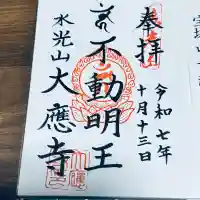 奉拝
令和七年
十月十三日
不動明王
水光山
大應寺